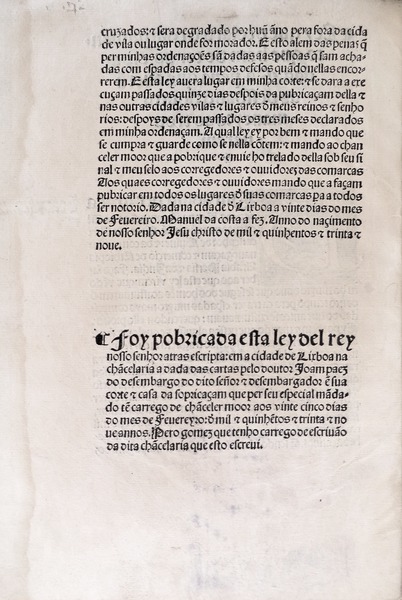 cruzados: & sera degradado por huũ ãno pera fora da cida
de vila ou lugar onde for morador. E esto alem das penas q̃
per minhas ordenações sam dadas aas pessoas q̃ sam acha-
das com espadas aos tempos defesos quãdo nellas encor-
rerem. E esta ley auera lugar em minha corte: & se dara a exe
cuçam passados quinze dias despois da pubricaçam della &
nas outras cidades vilas & lugares d̃ meus reinos & senho
rios: despoys de serem passados os tres meses declarados
em minha ordenaçam. A qual ley ey por bem & mando que
se cumpra & guarde como se nella cõtem: & mando ao chan
celer moor que a pobrique & enuie ho trelado della sob seu si
nal & meu selo aos corregedores & ouuidores das comarcas
Aos quaes corregedores & ouuidores mando que a façam
pubricar em todos os lugares d̃ suas comarcas pera a todos
ser notorio. Dada na cidade d̃ Lixboa a vinte dias do mes
de Feuereiro. Manuel da costa a fez. Anno do naçimento
de nosso senhor Jesu christo de mil & quinhentos & trinta &
noue.
☙ Foy pobricada esta ley del rey
nosso senhor atras escripta: em a cidade de Lixboa na
chãcelaria a dada das cartas pelo doutor Joam paez
do desembargo do dito señor & desembargador ẽ sua
corte & casa da sopricaçam que per seu especial mãda-
do tẽ carrego de chãceler moor aos vinte cinco dias
do mes de Feuereyro: d̃ mil & quinhẽtos & trinta & no
ue annos. Pero gomez que tenho carrego de escriuão
da dita chãcelaria que esto escreui.